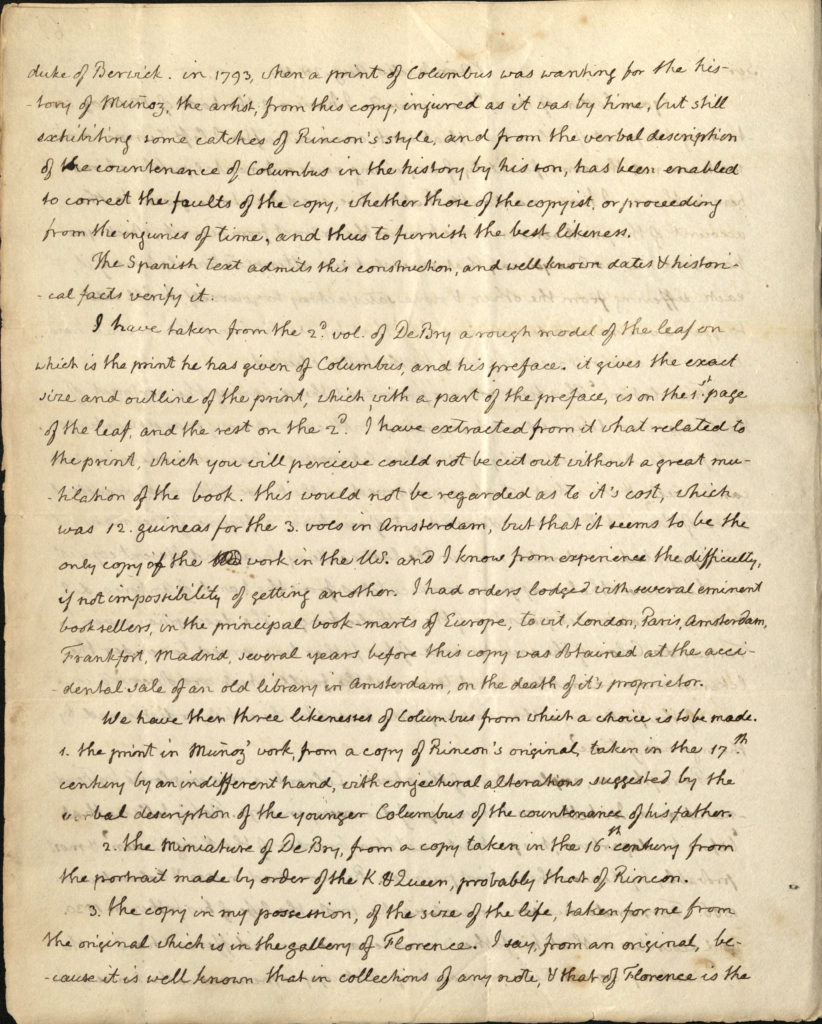 duke of Berwick. in 1793, when a print of Columbus was wanting for the his-
-tory of Muñoz, the artist, from this copy, injured as it was by time, but still
exhibiting some catches of Rincon's style, and from the verbal description
of the countenance of Columbus in the history by his son, has been enabled
to correct the faults of the copy, whether those of the copyist, or proceeding
from the injuries of time, and thus to furnish the best likeness.
The Spanish text admits this construction, and well known dates & histori-
-cal facts verify it.
I have taken from the 2d. vol. of De Bry a rough model of the leaf on
which is the print he has given of Columbus, and his preface. it gives the exact
size and outline of the print, which, with a part of the preface, is on the 1st. page
of the leaf, and the rest on the 2d. I have extracted from it what related to
the print, which you will percieve could not be cut out without a great mu-
-tilation of the book. this would not be regarded as to it's cost, which
was 12. guineas for the 3. vols in Amsterdam, but that it seems to be the
only copy of the work in the US. and I know from experience the difficulty,
if not impossibility of getting another. I had orders lodged with several eminent
booksellers, in the principal book-marts of Europe, to wit, London, Paris, Amsterdam,
Frankfort, Madrid, several years before this copy was obtained at the acci-
-dental sale of an old library in Amsterdam, on the death of it's proprietor.
We have then three likenesses of Columbus from which a choice is to be made.
1. the print in Muñoz' work, from a copy of Rincon's original, taken in the 17th.
century by an indifferent hand, with conjectural alterations suggested by the
verbal description of the younger Columbus of the countenance of his father.
2. the miniature of De Bry, from a copy taken in the 16th. century from
the portrait made by order of the K. & Queen, probably that of Rincon.
3. the copy in my possession, of the size of the life, taken for me from
the original which is in the gallery of Florence. I say, from an original, be-
-cause it is well known that in collections of any note, & that of Florence is the